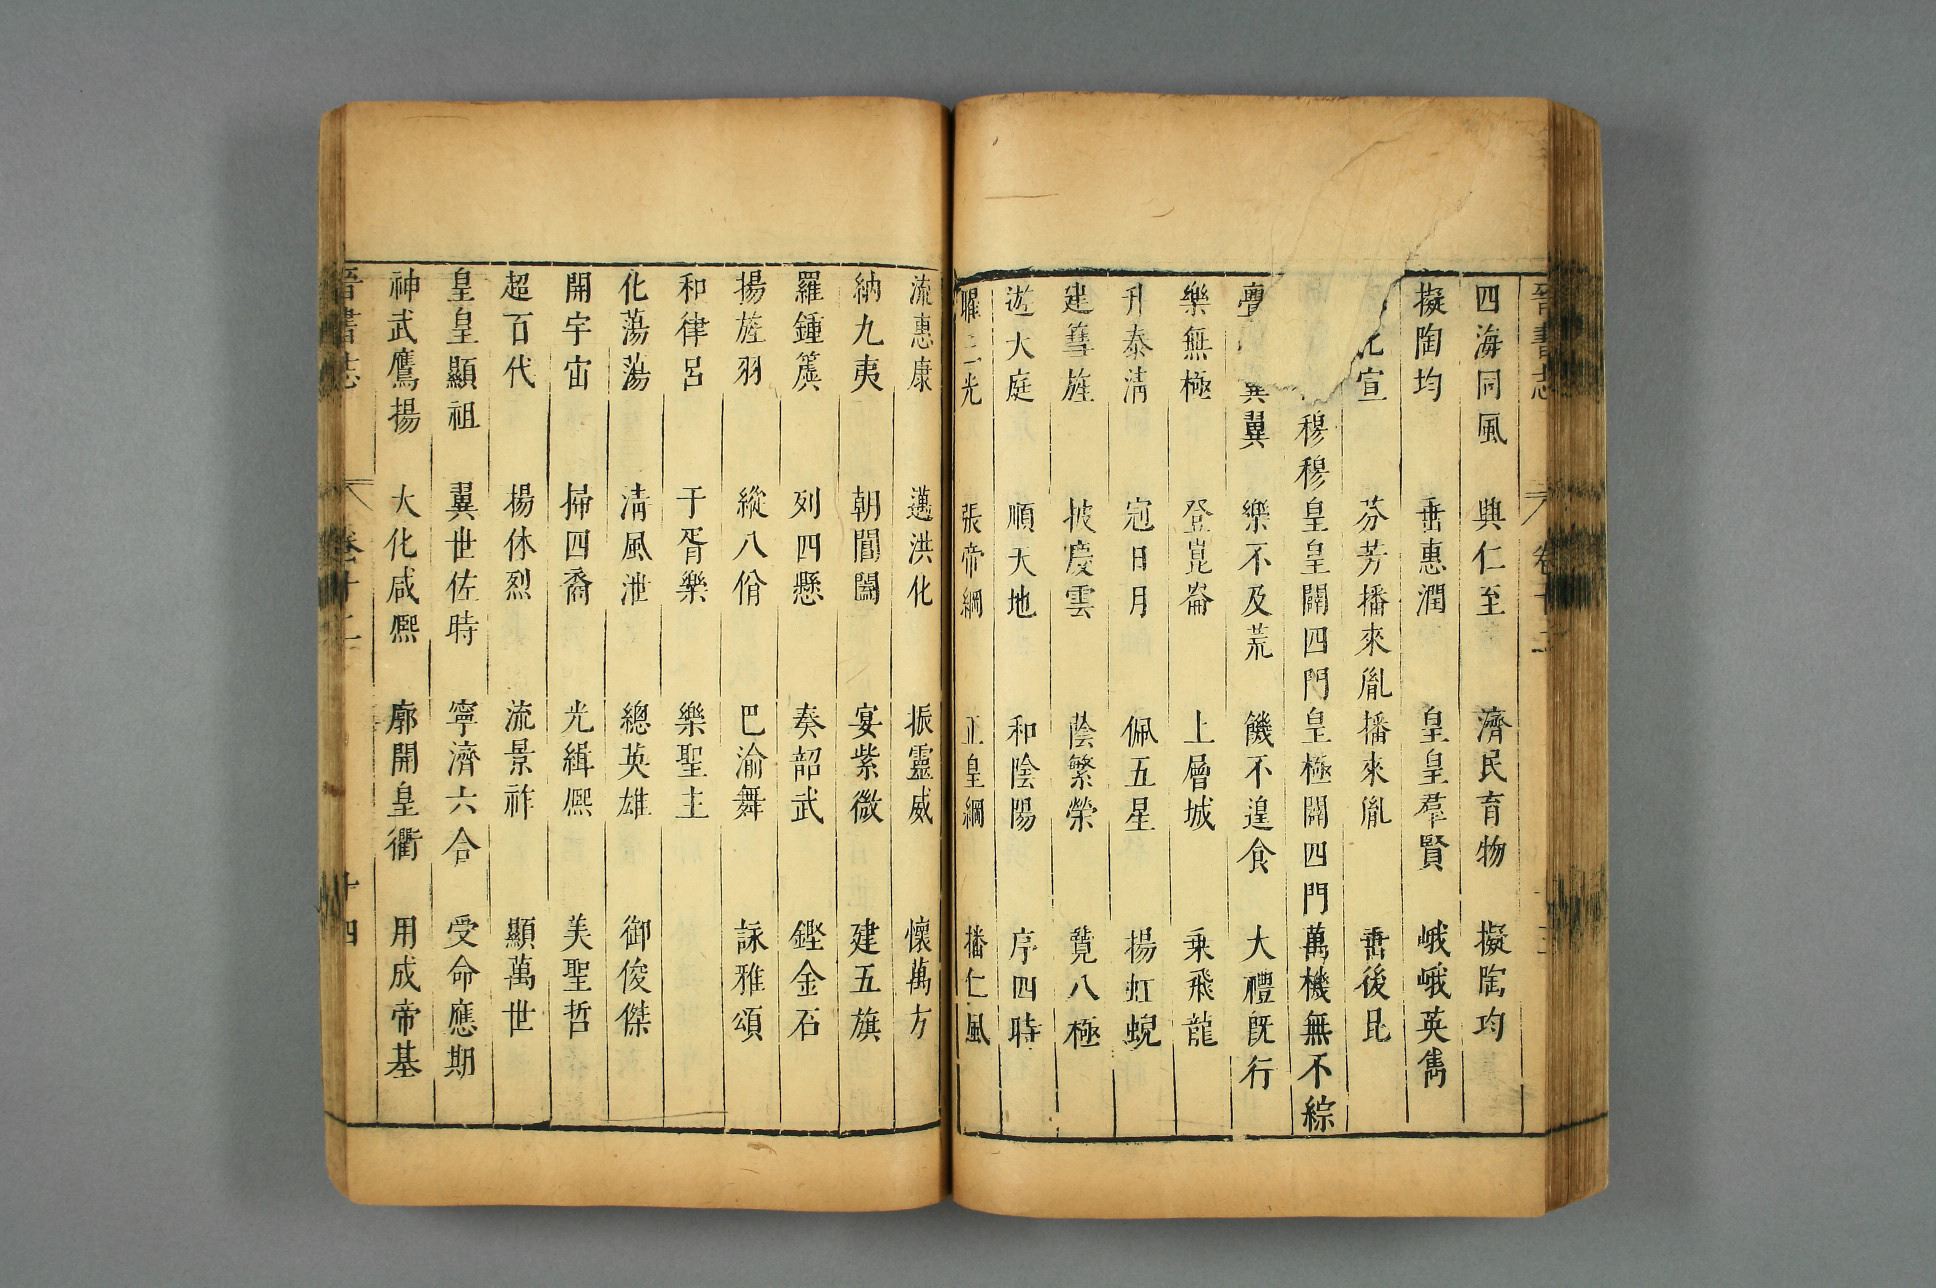 晉書志 卷十二 十三
四海同風 與仁至 濟民育物 擬陶均
擬陶均 垂惠潤 皇皇羣賢 峨峨英雋
化宣 芬芳播來胤播來胤 垂後昆
穆穆皇皇闢四門皇極闢四門萬機無不綜
亹 翼翼 樂不及荒 饑不遑食 大禮旣行
樂無極 登崑崙 上層城 乗飛龍
升泰淸 冠日月 佩五星 揚虹蜺
建篲旌 披慶雲 蔭繁榮 覽八極
遊大庭 順天地 和陰陽 序四時
曜三光 張帝綱 正皇綱 播仁風
流惠康 邁洪化 振靈威 懷萬方
納九夷 朝閶闔 宴紫微 建五旗
羅鍾簴 列四懸 奏韶武 鏗金石
揚旌羽 縱八佾 巴渝舞 詠雅頌
和律呂 于胥樂 樂聖主
化蕩蕩 淸風泄 總英雄 御俊傑
開宇宙 掃四裔 光緝熙 美聖哲
超百代 揚休烈 流景祚 顯萬世
皇皇顯祖 翼世佐時 寧濟六合 受命應期
神武鷹揚 大化咸熙 廓開皇衢 用成帝基
晉書志 卷十二 十四